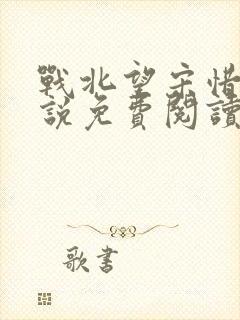 戰北望宋惜
說免費閱讀
歌書